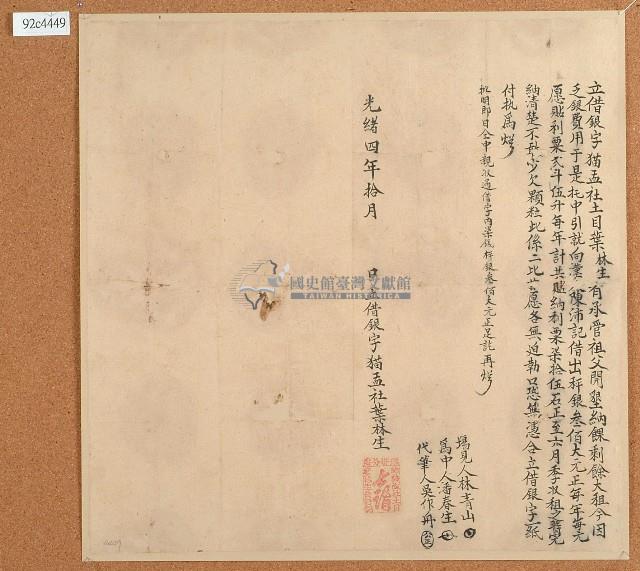 92c4449
立借銀字猫盂社土目葉林生有承管祖父開墾納餜剩餘大租今因
乏銀費用于是托中引就向業陳沛記借出秤銀叁佰大元正每年每元
愿貼利粟弍斗伍升每年計共貼納利粟柒拾伍石正至六月季收租之暫完
納清楚不敢少欠顆粒此係二比甘愿各無迫勒口恐無憑合立借銀字一紙
付执為炤
批明即日仝中親收過借字內柒錢秤銀叁佰大元正足訖再炤
塲見人林青山
為中人潘春生
代筆人吳作舟
光緒四年拾月 日立借銀字猫盂社葉林生
國史館臺灣文獻館
TAIWAN HISTORICA